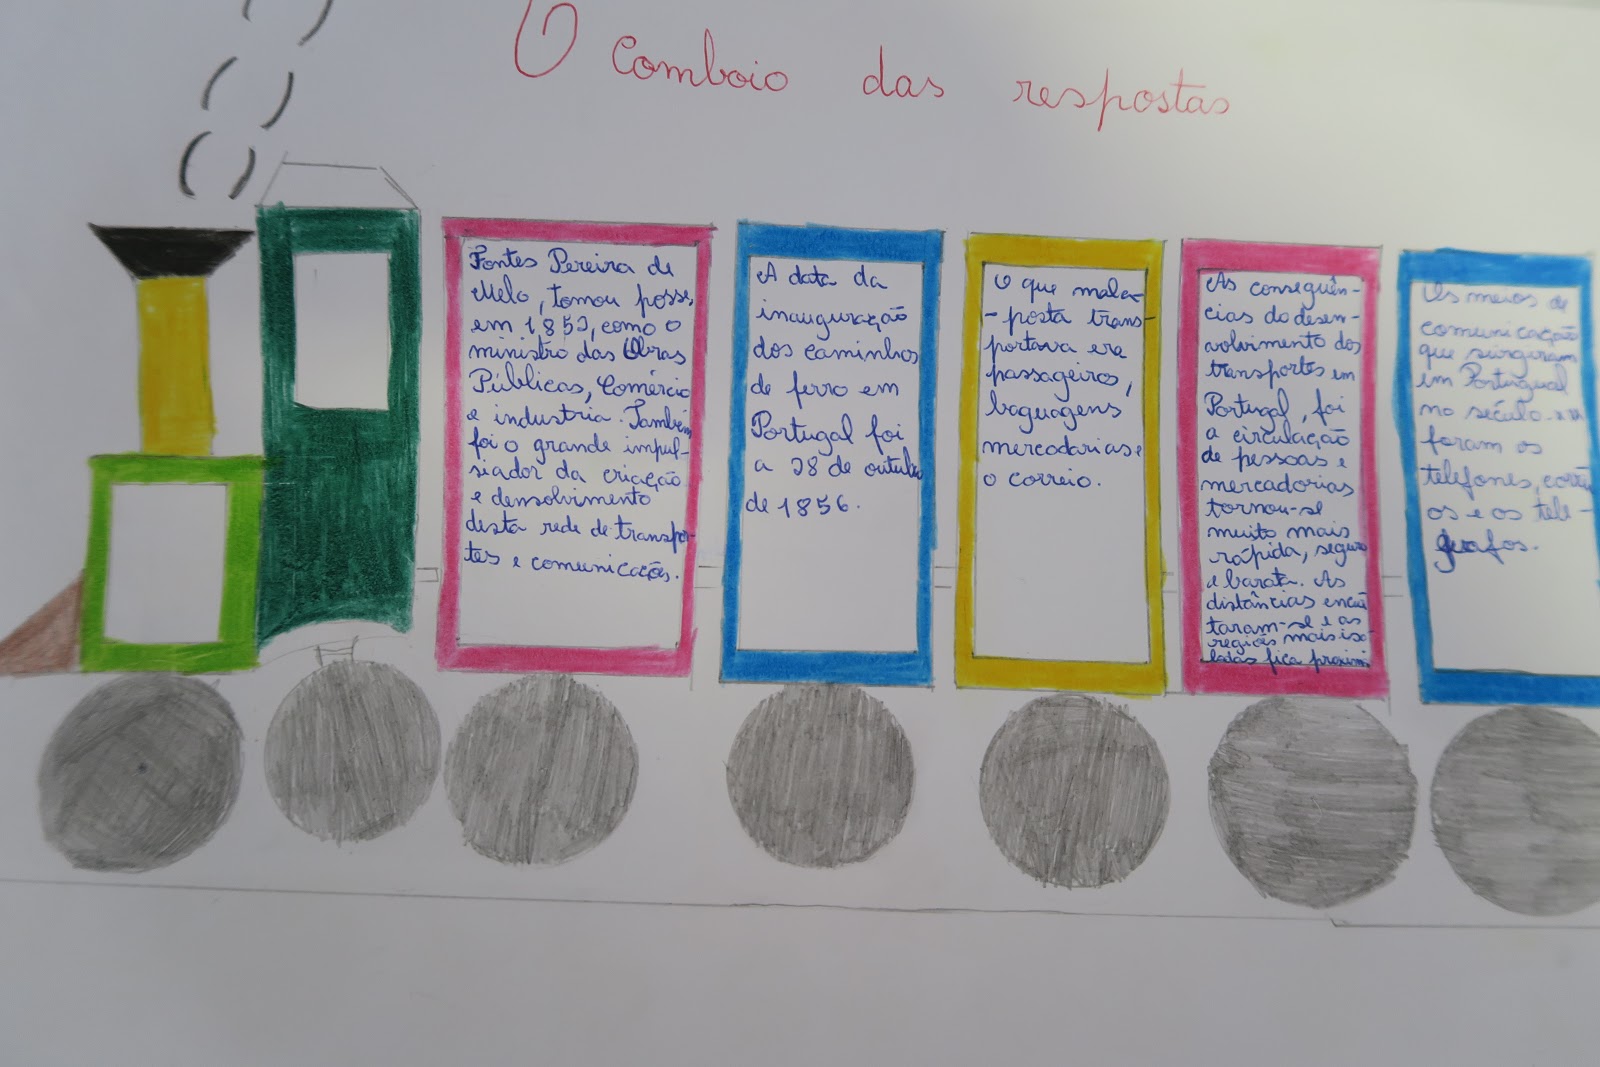 O Comboio das respostas
Fontes Pereira de
Melo, tomou posse,
em 1852, como o
ministro das Obras
Públicas, Comércio
e industria. Também
foi o grande impul-
siador da criação
e densolvimento
desta rede de transpor-
tes e comunicações.
A data da
inauguração
dos caminhos
de ferro em
Portugal foi
a 28 de outubro
de 1856.
O que mala-
-posta trans-
portava era
passageiros,
baguagens
mercadorias e
o correio.
As consequên-
cias do desen-
volvimento dos
transportes em
Portugal, foi
a circulação
de pessoas e
mercadorias
tornou-se
muito mais
rápida, segura
e barata. As
distâncias encur
taram-se e as
regiões mais iso-
ladas fica proxim
Os meios de
comunicação
que surgiram
em Portugual
no século
foram os
telefones, correi
os e os tele-
grafos.